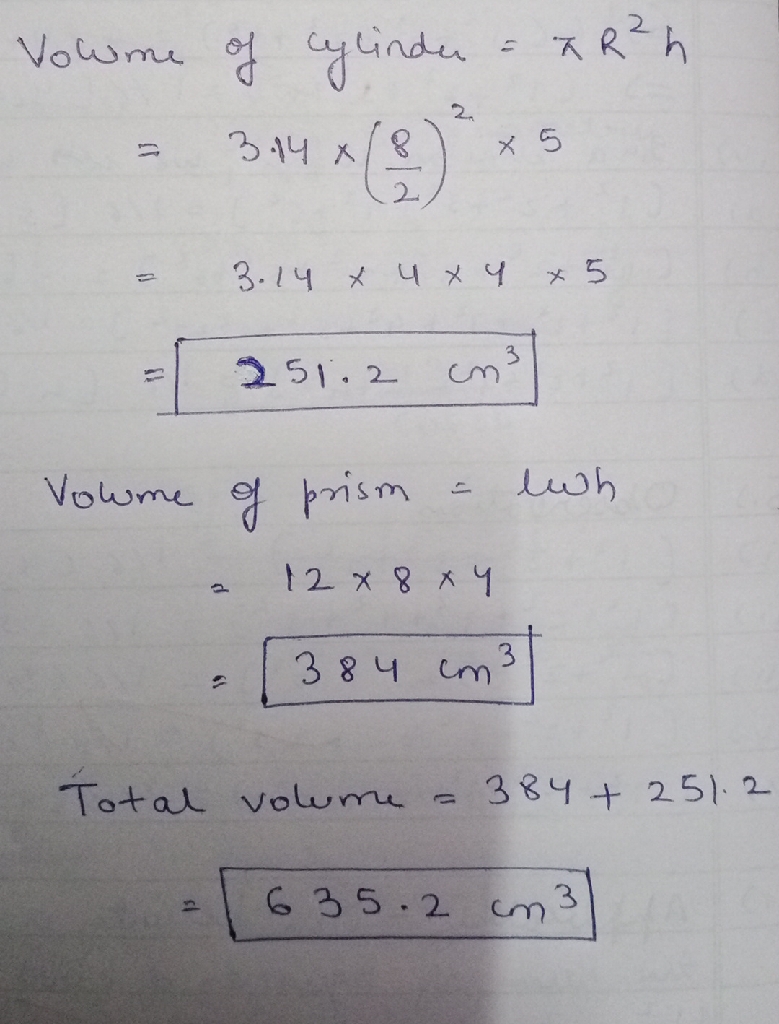 Volume of cylinder = πR²h
= 3.14 × (8/2)² × 5
= 3.14 × 4 × 4 × 5
= 251.2 cm³
Volume of prism = lwh
= 12 × 8 × 4
= 384 cm³
Total volume = 384 + 251.2
= 635.2 cm³